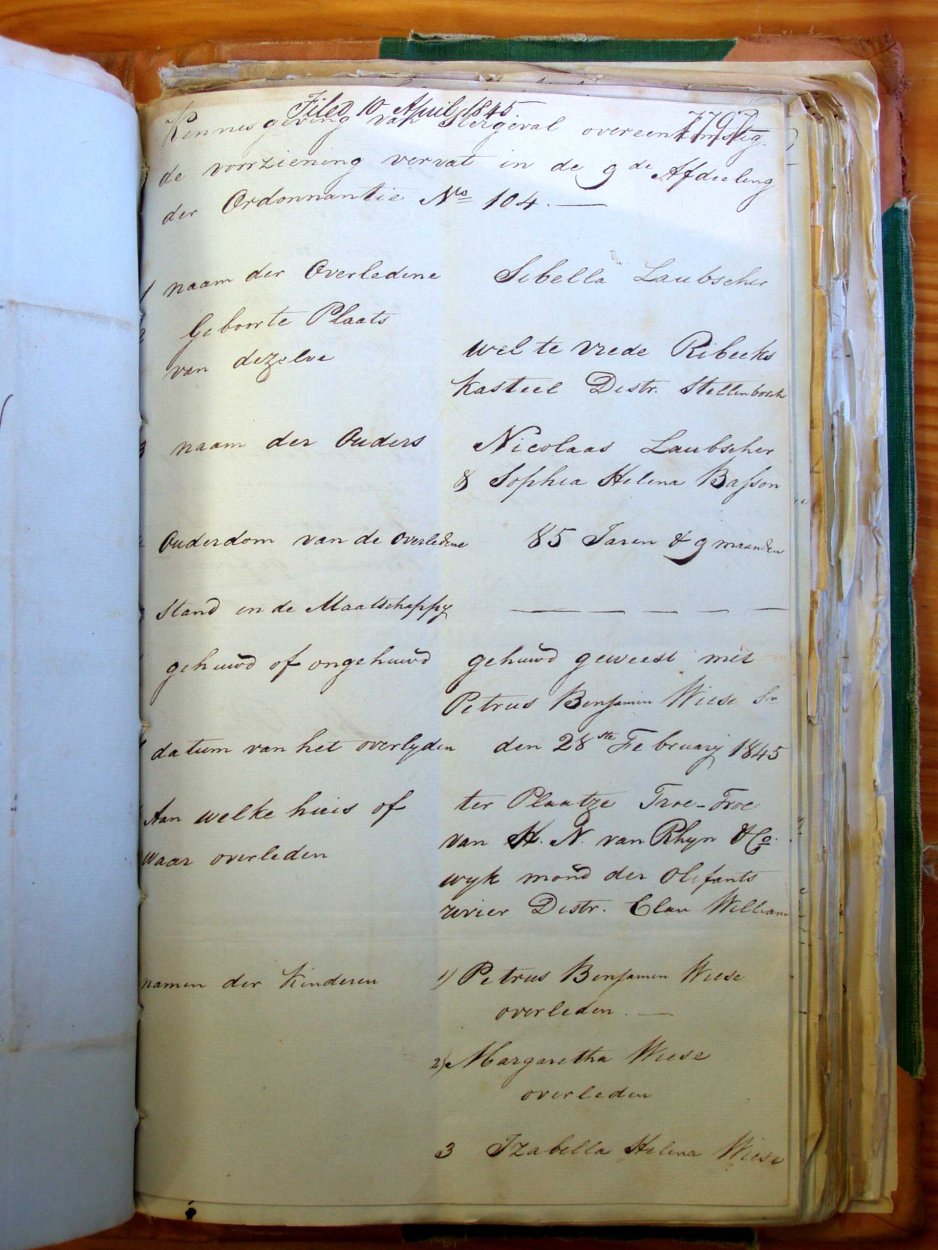 Filed 10 April 1845.
7797
Kennisgeving van Stergeval overeenkomstig
de voorziening vervat in de 9de Afdeeling
der Ordonnantie No 104. —
1 naam der Overledene Sibella Laubscher
2 Geboorte Plaats
van dezelve Wel te vrede Ribeeks
Kasteel Distr. Stellenbosch
3 naam der Ouders Nicolaas Laubscher
& Sophia Helena Basson
Ouderdom van de Overledene 85 Jaren & 9 maanden
Stand in de Maatschappy — — — — — —
gehuwd of ongehuwd gehuwd geweest met
Petrus Benjamin Wiese Sr
datum van het overlyden den 28ste February 1845
Aan welke huis of ter Plaatze Troe-Troe
waar overleden van H. N. van Rhyn & Co.
wyk mond der Olifants
rivier Distr. Clan William
namen der Kinderen 1) Petrus Benjamin Wiese
overleden. —
2) Margaretha Wiese
overleden
3 Izabella Helena Wiese